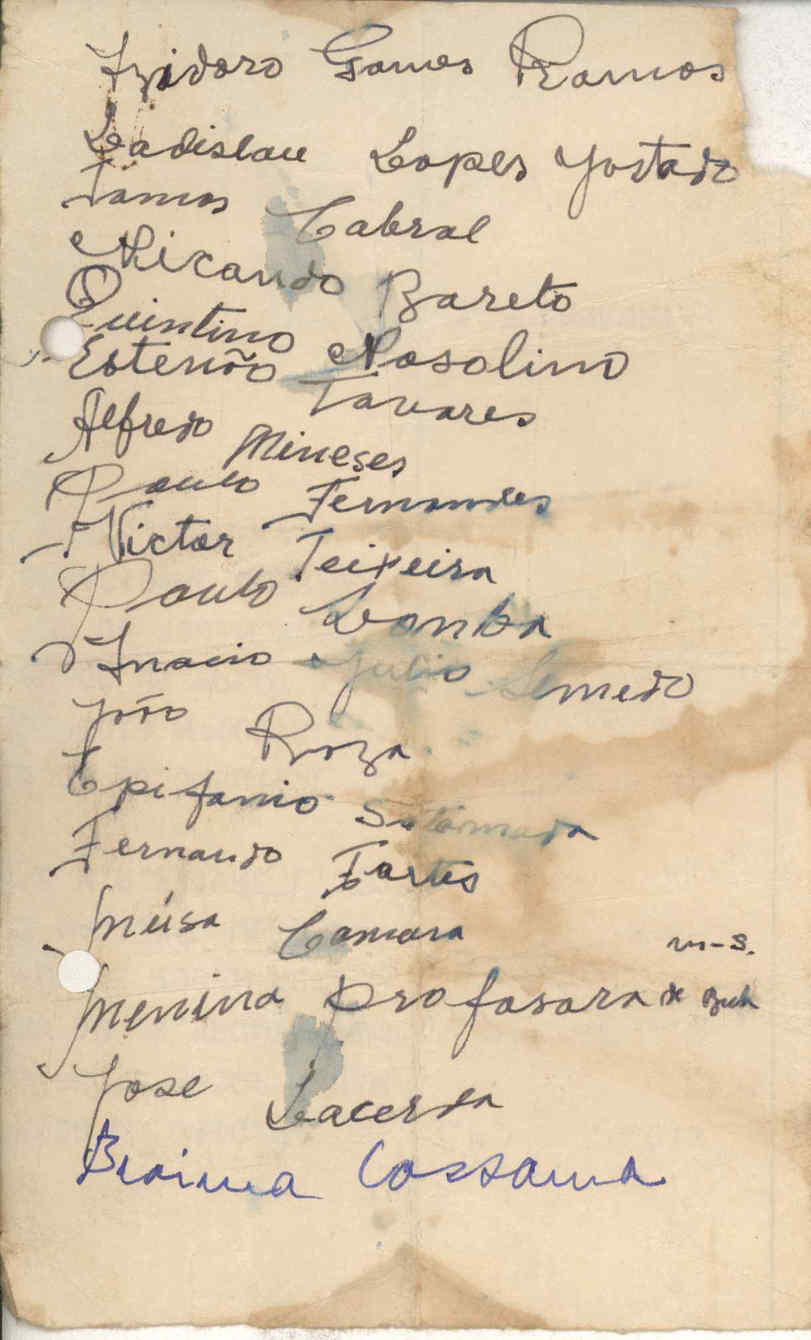 Izidoro Gomes Ramos
Ladislau Lopes Jostado
Tamos Cabral
Ricando Bareto
Quintino Nosolino
Estenão Tavares
Alfredo Mineses
Paulo Fernandes
Victor Teixeira
Paulo Lomba
Inacio Julio Semedo
João Roza
Epifanio
Fernando Fortes
Meúsa Camara
m-s.
Menina Profasara de
Jose Lacerda
Braima Cassama